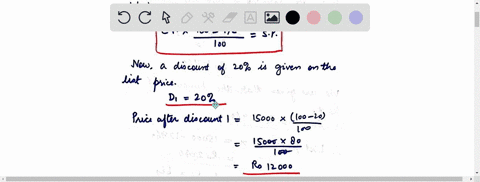 100
= S.P.
Now, a discount of 20% is given on the
list price.
D1 = 20%
Price after discount 1 = 15000 × (100-20)/100
= 15000 × 80/100
= Rs 12000